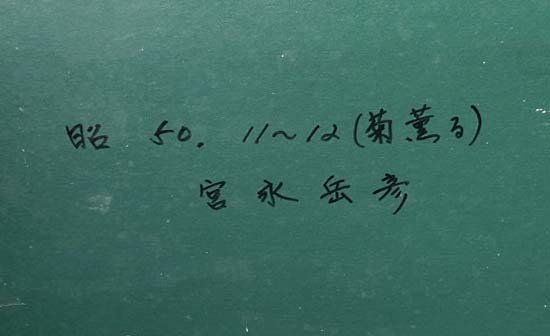 昭 50. 11~12 (菊薫る)
宮永岳彦